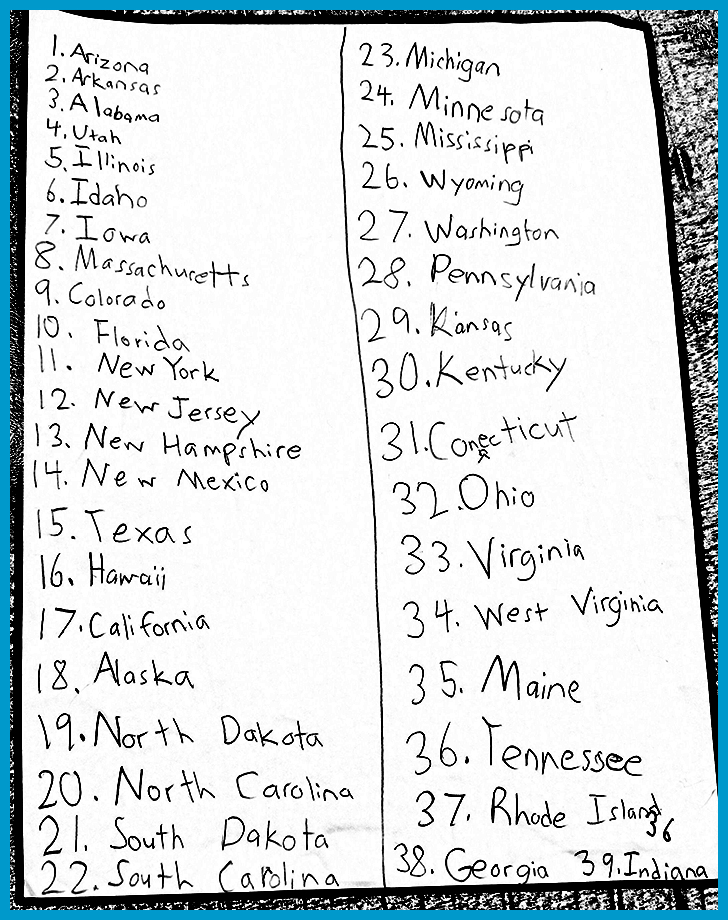 1. Arizona
2. Arkansas
3. Alabama
4. Utah
5. Illinois
6. Idaho
7. Iowa
8. Massachuretts
9. Colorado
10. Florida
11. New York
12. New Jersey
13. New Hampshire
14. New Mexico
15. Texas
16. Hawaii
17. California
18. Alaska
19. North Dakota
20. North Carolina
21. South Dakota
22. South Carolina
23. Michigan
24. Minnesota
25. Mississippi
26. Wyoming
27. Washington
28. Pennsylvania
29. Kansas
30. Kentucky
31. Conecticut
32. Ohio
33. Virginia
34. West Virginia
35. Maine
36. Tennessee
37. Rhode Island
36
38. Georgia 39. Indiana